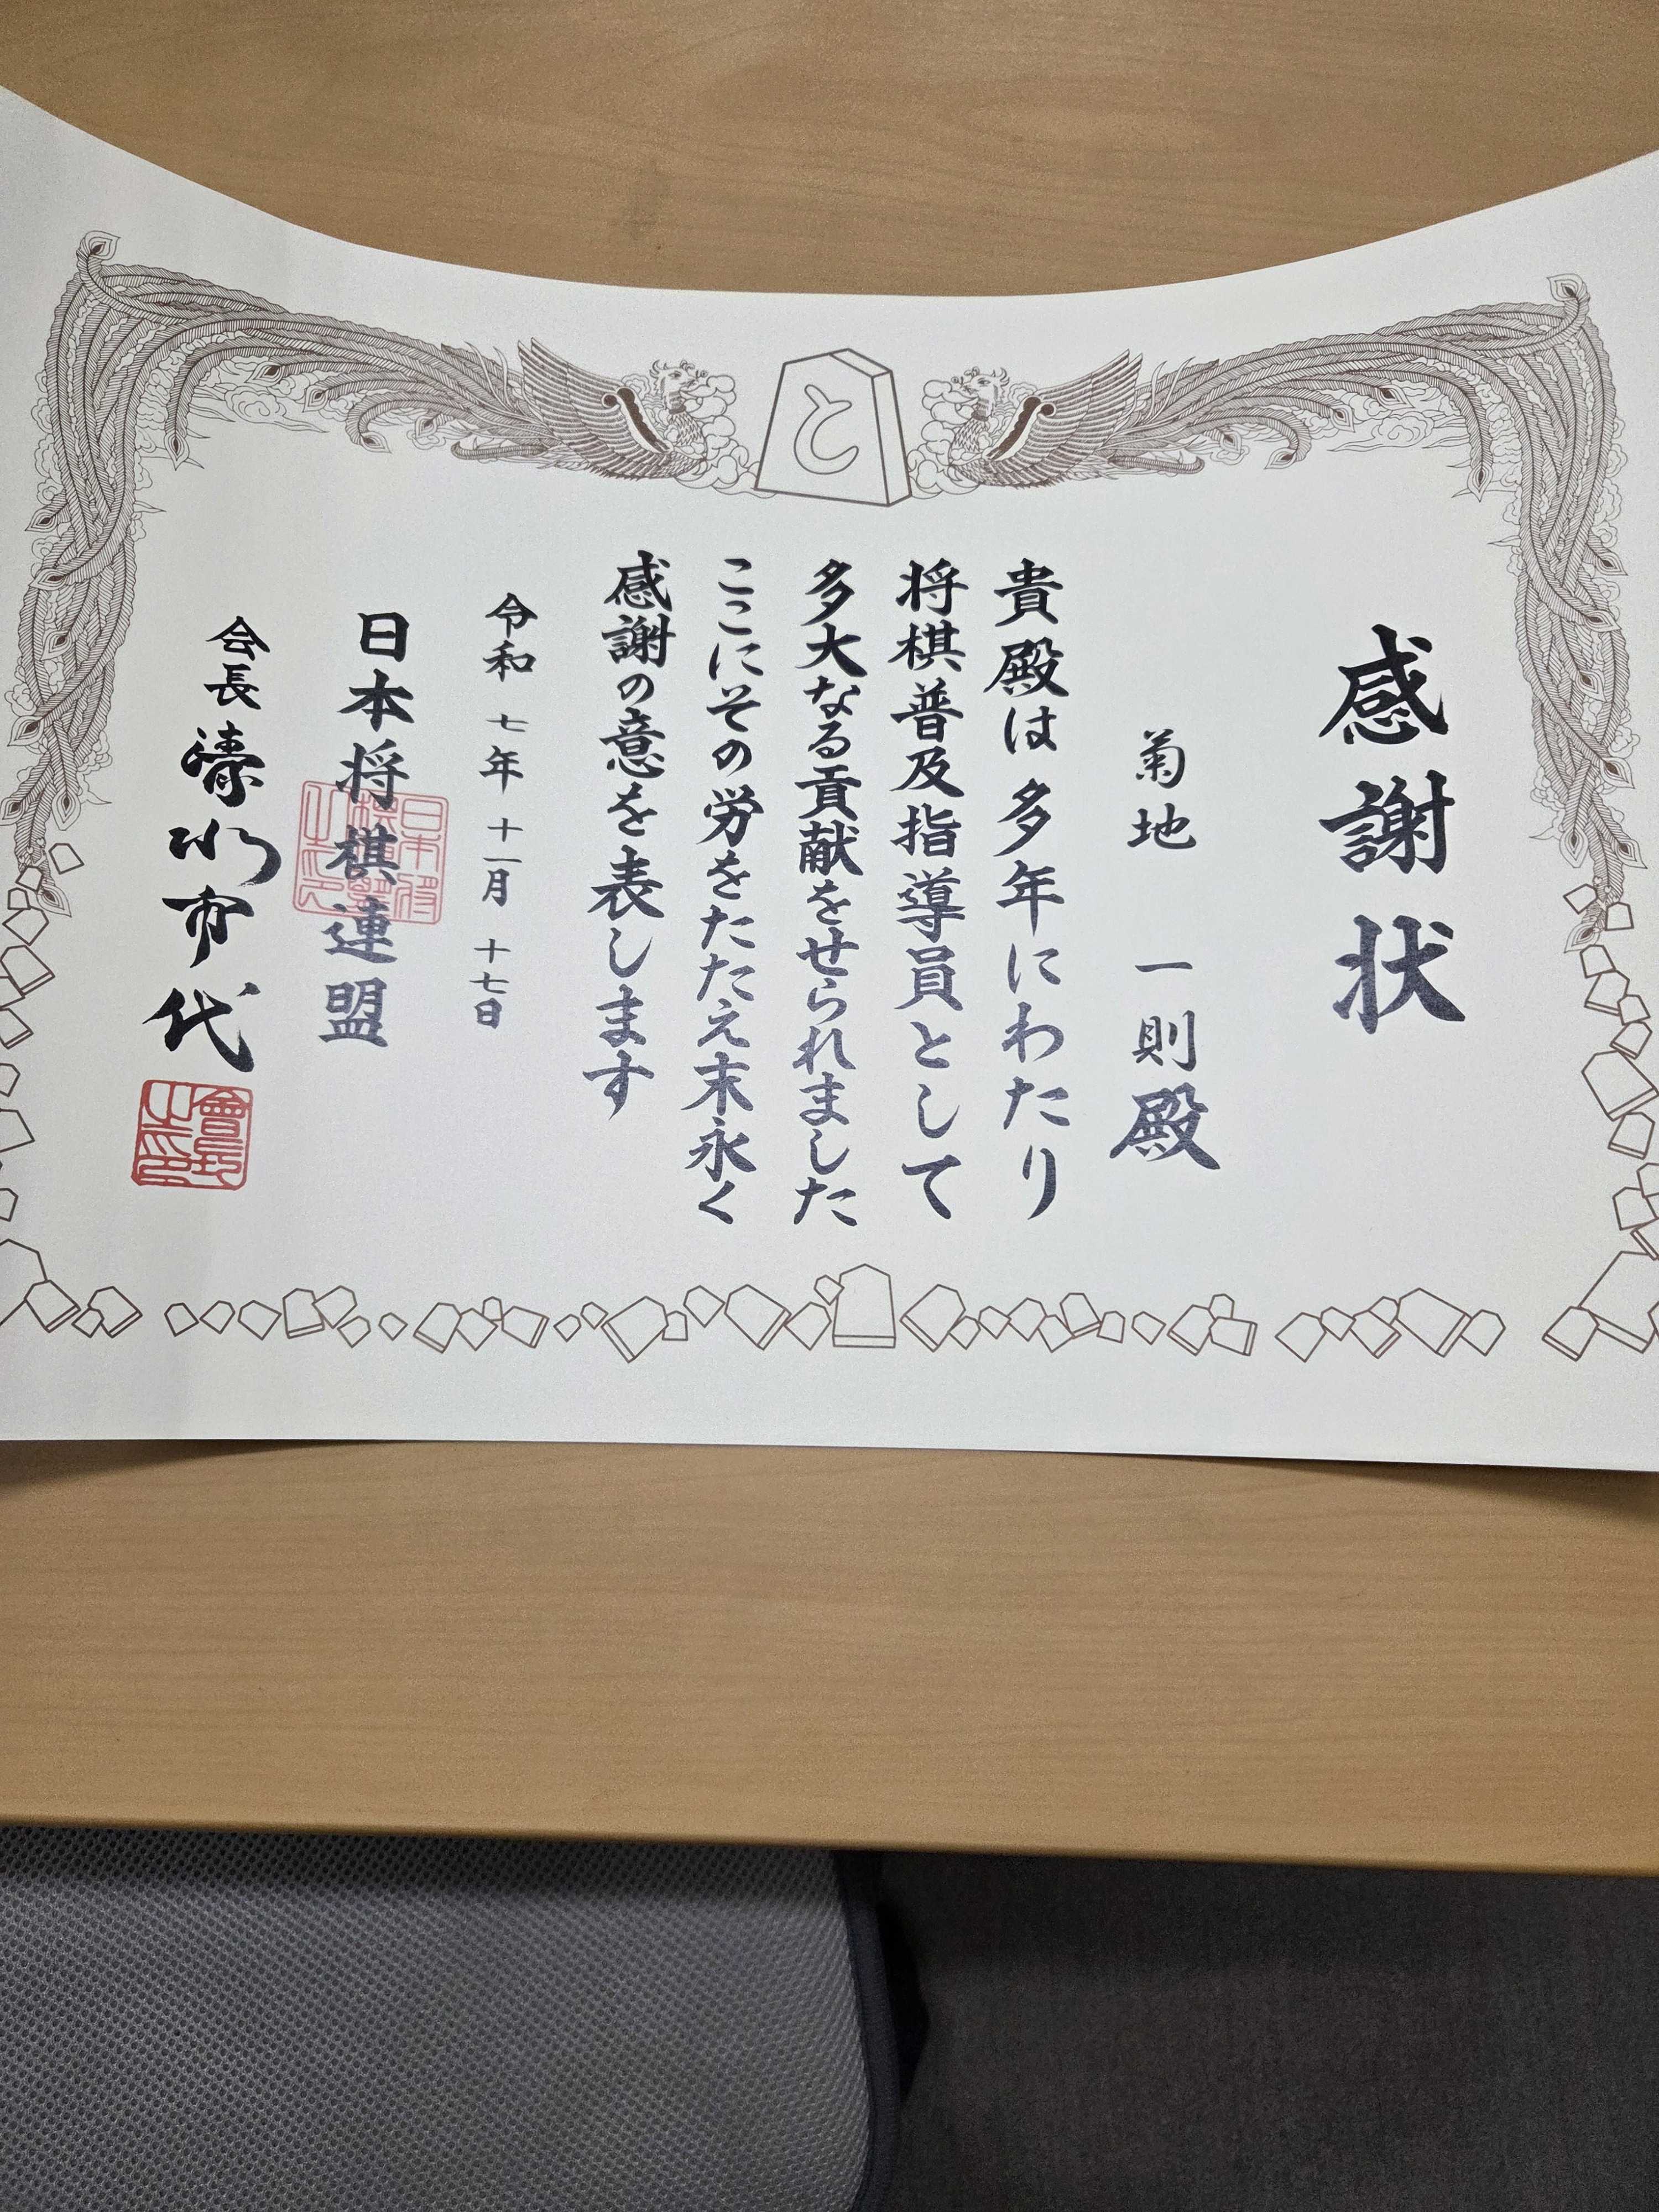 と
感謝状
菊地 一則殿
貴殿は多年にわたり
将棋普及指導員として
多大なる貢献をせられました
ここにその労をたたえ末永く
感謝の意を表します
令和 七年 十一月 十七日
日本将棋連盟
会長 清水市代